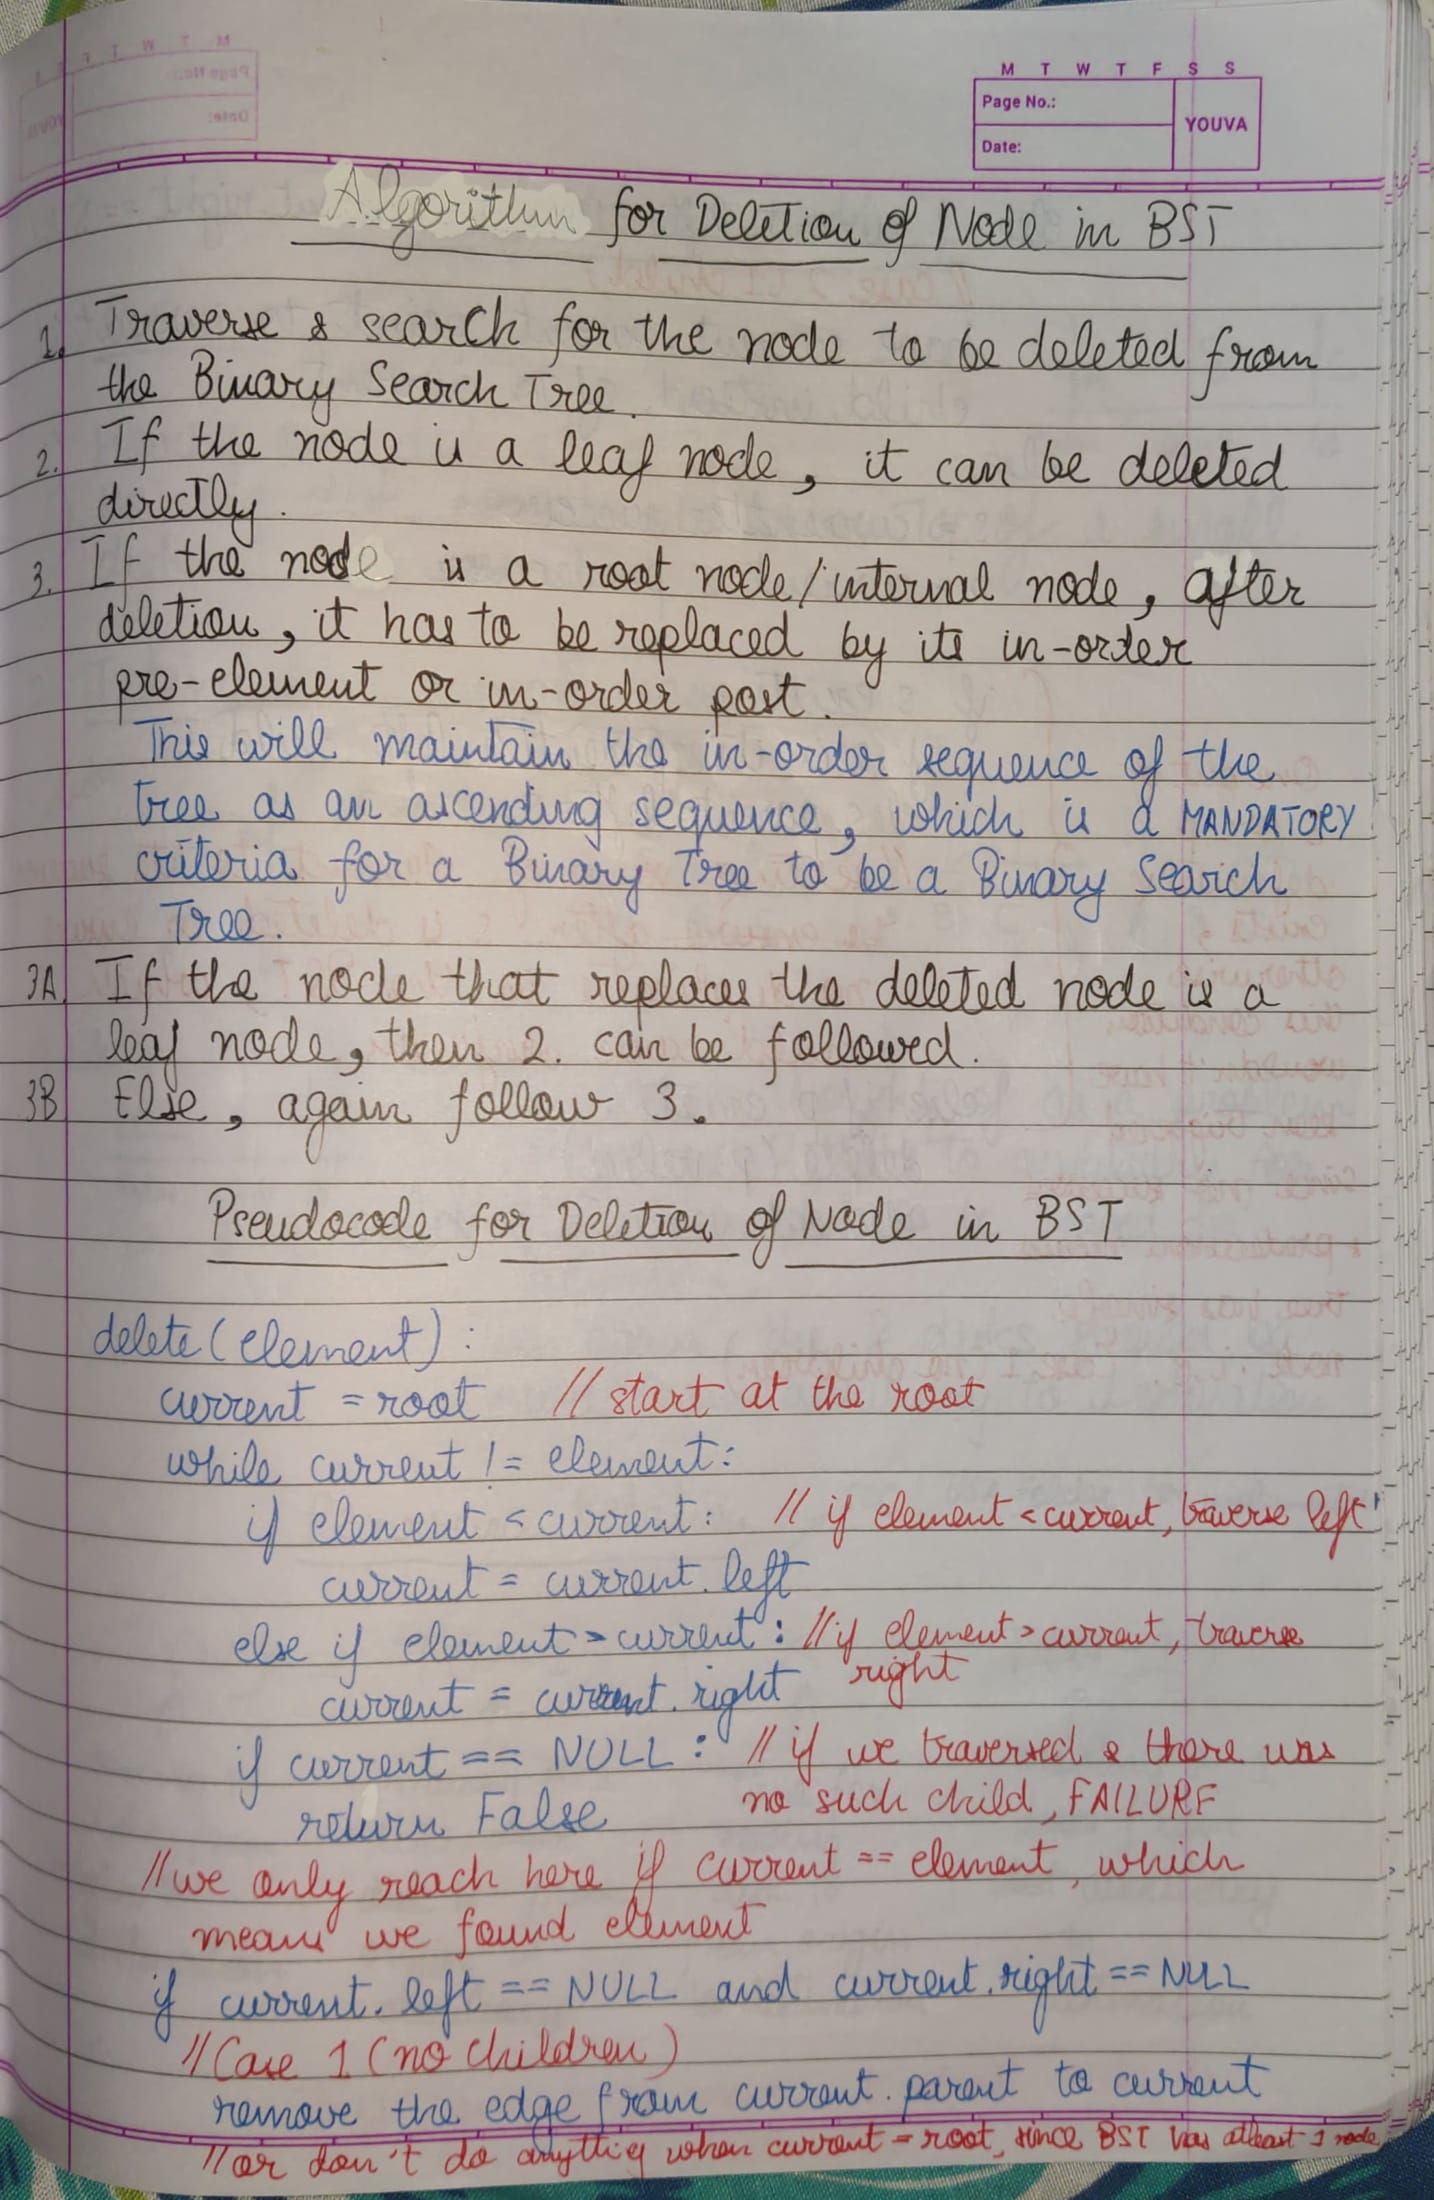 M T W T F S S
Page No.:
YOUVA
Date:
Algorithm for Deletion of Node in BST
1. Traverse & search for the node to be deleted from
the Binary Search Tree.
2. If the node is a leaf node, it can be deleted
directly.
3. If the node is a root node/internal node, after
deletion, it has to be replaced by its in-order
pre-element or in-order post.
This will maintain the in-order sequence of the
tree as an ascending sequence, which is a MANDATORY
criteria for a Binary Tree to be a Binary Search
Tree.
3A If the node that replaces the deleted node is a
leaf node, then 2. can be followed.
3B Else, again follow 3.
Pseudocode for Deletion of Node in BST
delete(element):
current = root //start at the root
while current != element:
if element < current: // if element < current, traverse left
current = current.left
else if element > current: //if element > current, traverse
right
current = current.right
if current == NULL: //if we traversed & there was
return False no such child, FAILURE
//we only reach here if current == element, which
means we found element
if current.left == NULL and current.right == NULL
//Case 1 (no children)
remove the edge from current.parent to current
//or don't do anything when current = root, since BST has atleast 1 node